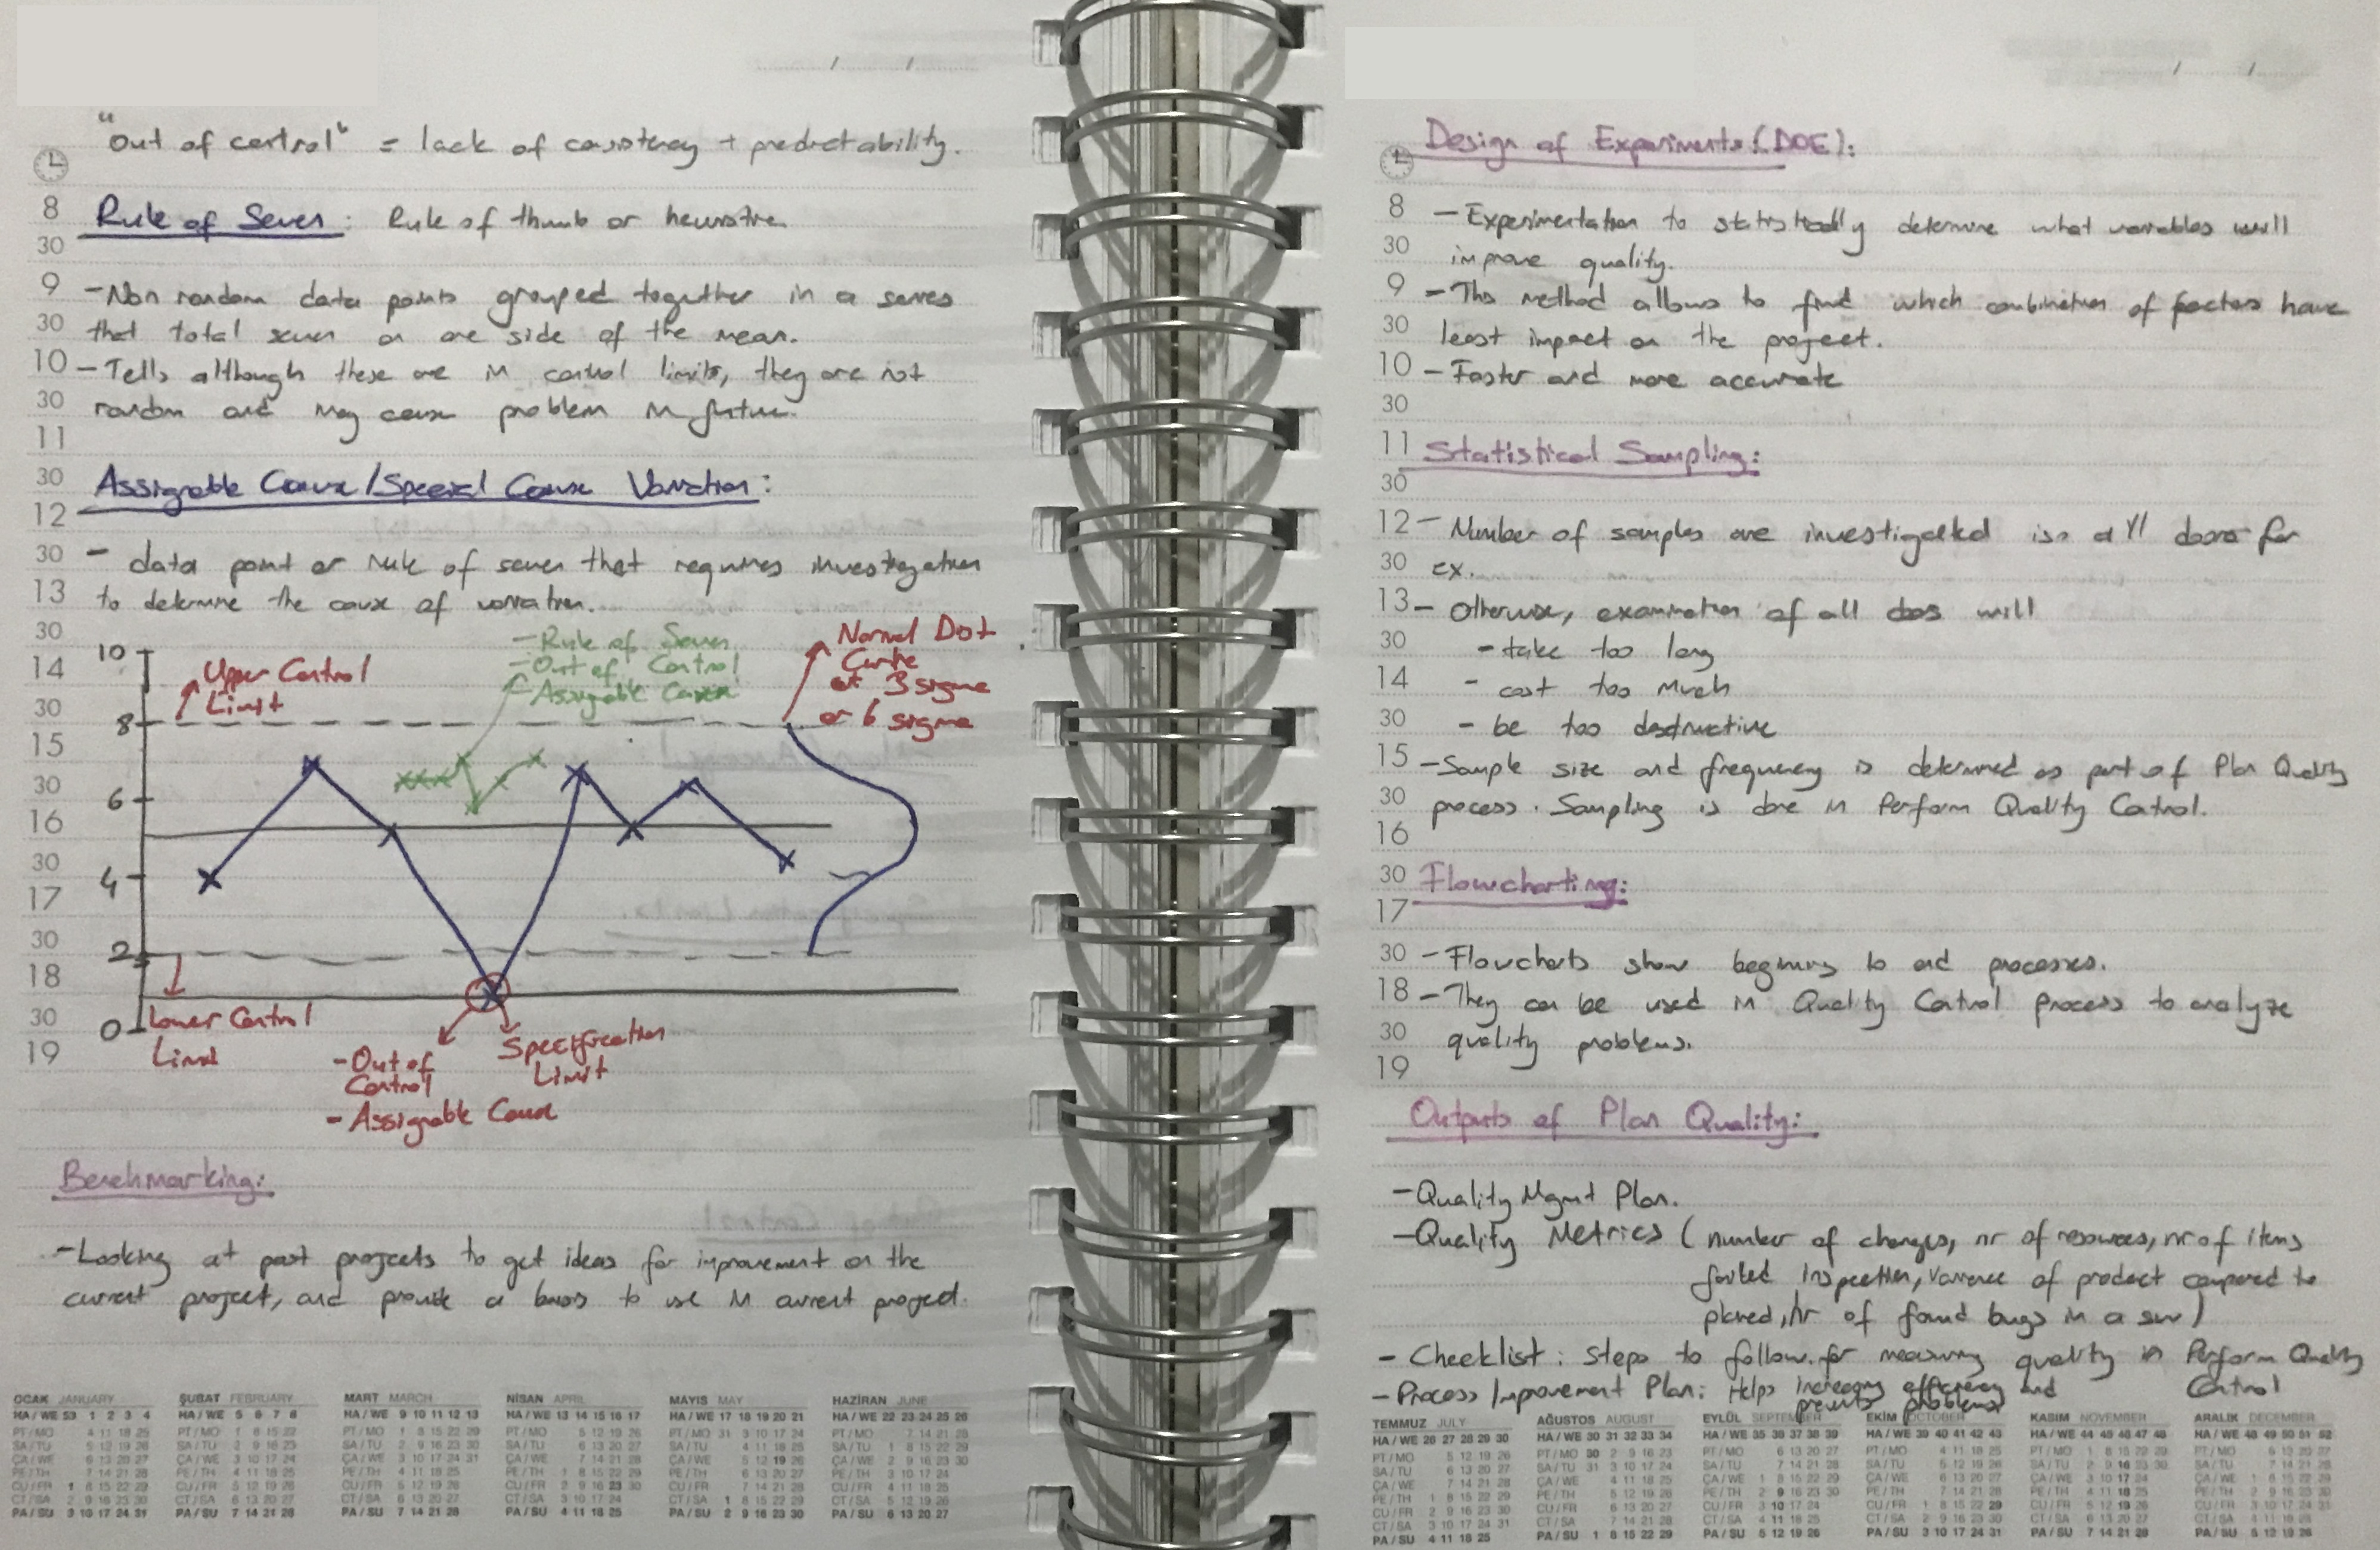 "Out of control" = lack of consistency + predictability.
Rule of Seven: Rule of thumb or heuristic
- Non random data points grouped together in a series
that total seven on one side of the mean.
- Tells although these are in control limits, they are not
random and may cause problem in future.
Assignable Cause/Special Cause Variation:
- data point or rule of seven that requires investigation
to determine the cause of variation.
- Rule of Seven
- Out of Control
- Assignable Cause
Normal Dist
Curve
at 3 sigma
or 6 sigma
Upper Control
Limit
10
8
6
4
2
0
Lower Control
Limit
- Out of
Control
- Assignable Cause
Specification
Limit
Benchmarking:
- Looking at past projects to get ideas for improvement on the
current project, and provide a basis to use in current project.
8
30
9
30
10
30
11
30
12
30
13
30
14
30
15
30
16
30
17
30
18
30
19
OCAK JANUARY
ŞUBAT FEBRUARY
MART MARCH
NİSAN APRIL
MAYIS MAY
HAZİRAN JUNE
Design of Experiments (DOE):
- Experimentation to statistically determine what variables will
improve quality.
- This method allows to find which combination of factors have
least impact on the project.
- Faster and more accurate
Statistical Sampling:
- Number of samples are investigated all doors for
ex.
- Otherwise, examination of all will
- take too long
- cost too much
- be too destructive
- Sample size and frequency is determined as part of Plan Quality
process. Sampling is done in Perform Quality Control.
Flowcharting:
- Flowcharts show beginning to end processes.
- They can be used in Quality Control process to analyze
quality problems.
Outputs of Plan Quality:
- Quality Mgmt Plan.
- Quality Metrics (number of changes, nr of resources, nr of items
failed inspection, variance of product compared to
planned, Nr of found bugs in a sw)
- Checklist: Steps to follow for measuring quality in Perform Quality
Control
- Process Improvement Plan: Helps increasing efficiency and
prevents problems
8
30
9
30
10
30
11
30
12
30
13
30
14
30
15
30
16
30
17
30
18
30
19
TEMMUZ JULY
AĞUSTOS AUGUST
EYLÜL SEPTEMBER
EKİM OCTOBER
KASIM NOVEMBER
ARALIK DECEMBER